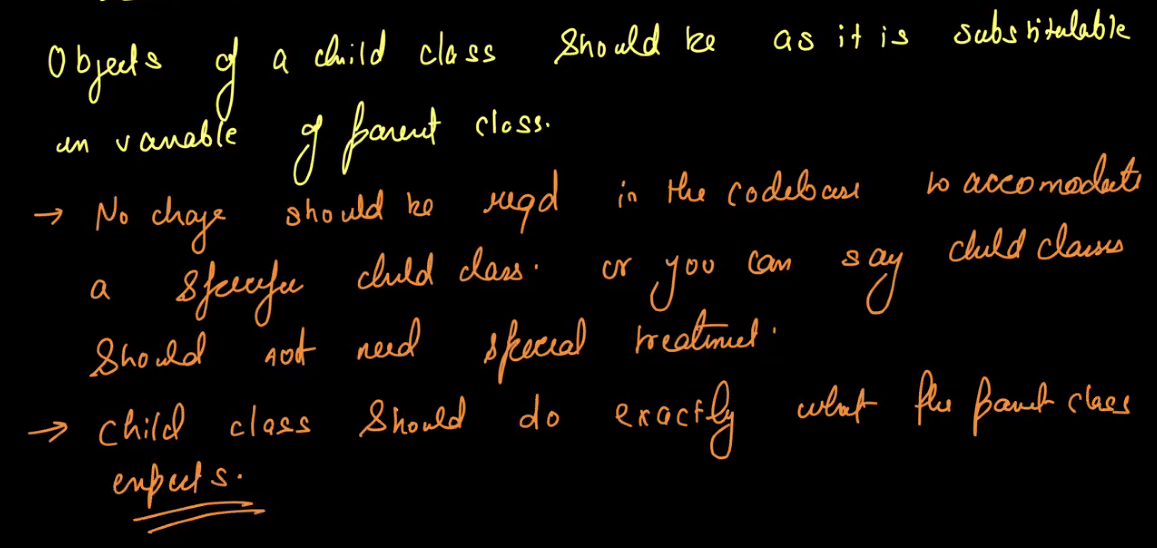 Objects of a child class should be as it is substitutable
in variable of parent class.
→ No change should be reqd in the codebase to accomodate
a specific child class. or you can say child classes
should not need special treatment.
→ child class should do exactly what the parent class
expects.